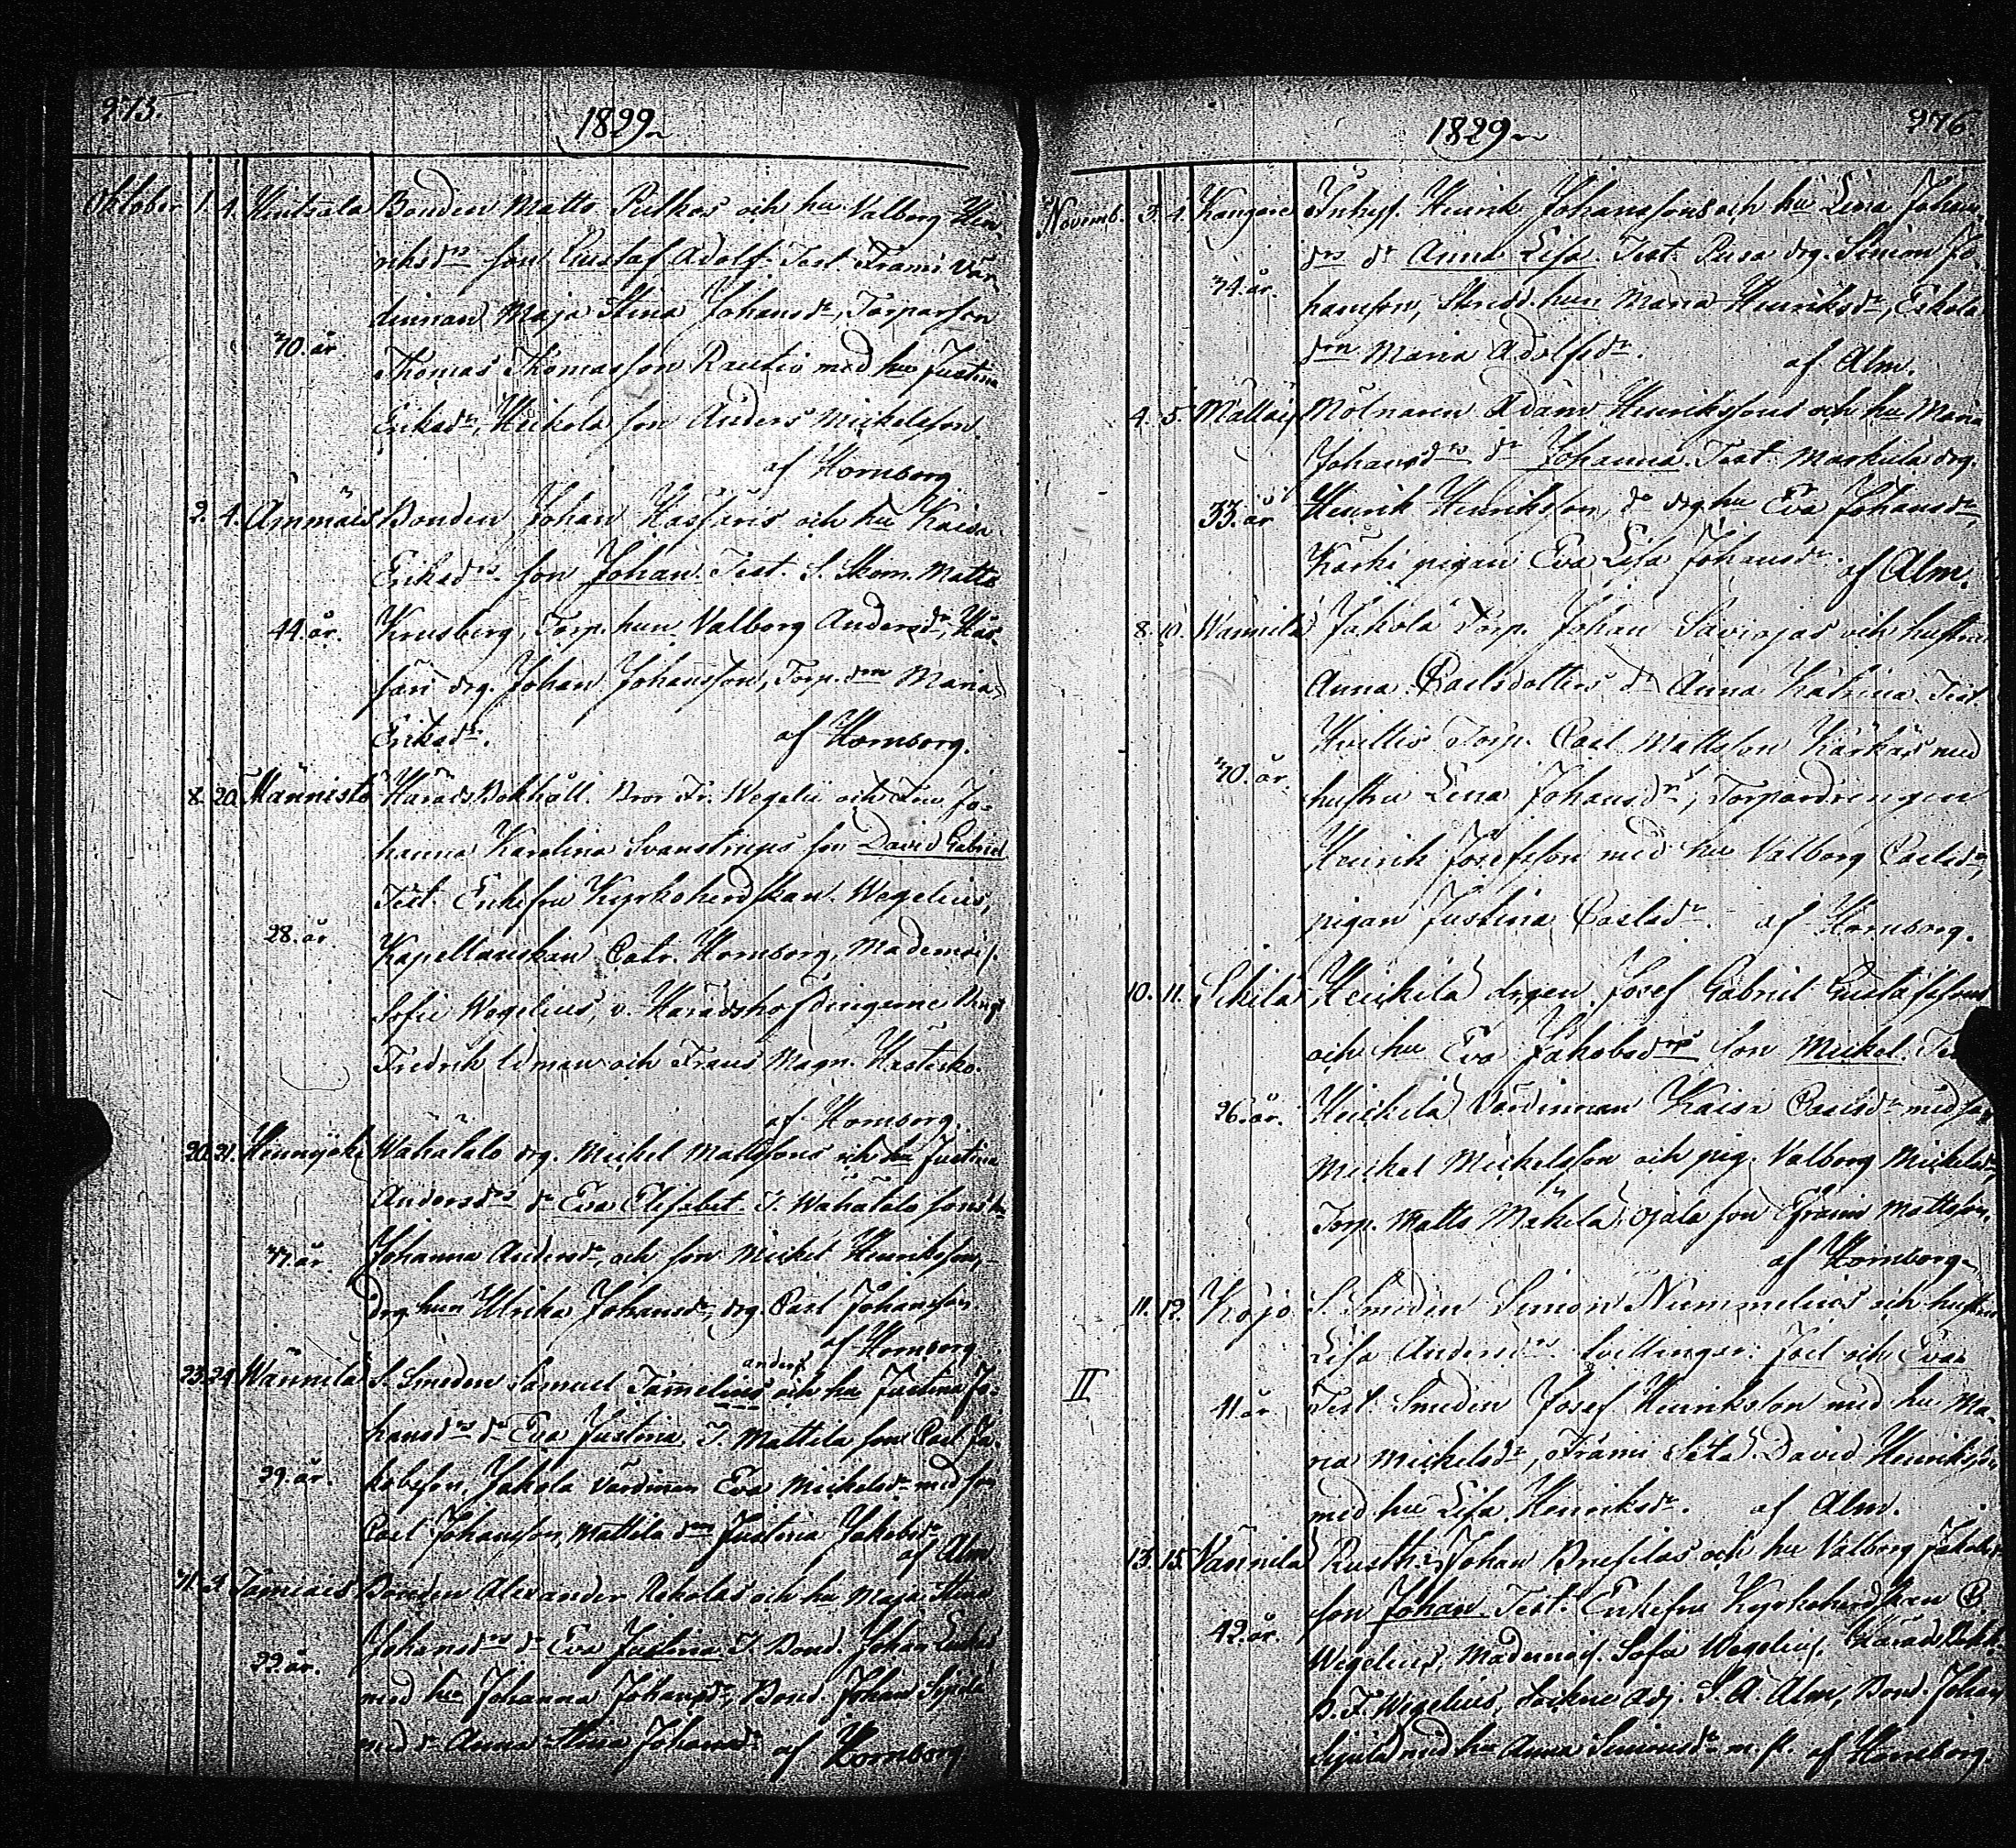 975.
1829
Oktober 1. 4. Hintzala Bonden Matts Pulkas och hu Valborg Hen
riksdrs son Gustaf Adolf. Test. Frami Vär
dinnan Maja Stina Johansdr, Torparson
40. år. Thomas Thomasson Rautio med hu Justina
Eriksdr, Heikola son Anders Mickelsson.
af Hornborg.
2. 4. Ämmäis Bonden Johan Hassaris och hu Kaisa
Eriksdrs son Johan. Test. S. Skom. Matts
44. år. Krusberg, Torp. hun Valborg Andersdr, Has
sari drg. Johan Johansson, Torp. drn Maria
Eriksdr. af Hornborg.
8. 20. Männistö Härads Bokhåll. Bror Fr. Wegelii och Fru Jo-
hanna Karolina Svanströms son David Gabriel
Test. Enkefru Kyrkoherdskan Wegelius,
28. år. Kapellanskan Catr. Hornborg, Mademois.
Sofie Wegelius, v. Häradshöfdingarne Bengt
Fredrik Uman och Frans Magn. Hästesko.
af Hornborg.
20. 21. Hennijoki Wähätalo drg. Mickel Mattssons och hu Justina
Andersdrs dr Eva Elisabet. T. Wähätalo
37. år. Johanna Andersdr, och son Mickel Henriksson,
drg. hun Ulrika Johansdr, drg. Carl Johansson
af Hornborg.
23. 24. Wännilä S. Smeden Samuel Tamelius anders och hu Justina Jo-
hansdrs dr Eva Justina. T. Mattila son Carl Ja-
39. år. kobsson, Jakola Värdinnan Eva Mickelsdr med son
Carl Johansson, Mattila drn Justina Jakobsdr
af Alm
31. Bonden Alexander Rekolas och hu Maja Stina
Johansdrs dr Eva Justina. T. Bond. Johan
32. år. med hu Johanna Johansdr, Bond. Johan Sipilä
med dr Anna Stina Johansdr af Hornborg
976.
1829
Novemb. 3. 4. Kangare Inhys. Henrik Johanssons och hu Lena Johans
drs dr Anna Lisa. Test. Pusa drg. Simon Jo
34. år. hansson, hun Maria Henriksdr, Eskola
drn Maria Adolfsdr. af Alm.
4. 5. Mallais Mölnaren Adam Henrikssons och hu Maria
Johansdrs dr Johanna. Test. Maskula drg.
33. år Henrik Henriksson, do drg. hu Eva Johansdr,
Karhi pigan Eva Lisa Johansdr. af Alm.
8. 10. Wännilä Jakola Torp. Johan Saviojas och hustru
Anna Carlsdotters dr Anna Katrina. Test.
Huittis Torp. Carl Mattsson Kärkäs med
40. år. hustru Lena Johansdr, Torpardrengen
Henrik Josefsson med hu Valborg Carlsdr,
pigan Justina Carlsdr. af Hornborg.
10. 11. Sikilä Heickilä drgen Josef Gabriel Gustafssons
och hu Eva Jakobsdrs son Mickel.
26. år. Heickilä Värdinnan Kaisa Carlsdr med son
Mickel Mickelsson och pig. Valborg Mickelsdr,
Torp. Matts Mäkelä, Ojala son Efraim Mattsson.
af Hornborg.
11. 12. Kojo S. Smeden Simon Nummelins och hustru
Lisa Andersdrs tvillingar: Joel och Eva.
II 41 år Test. Smeden Josef Henriksson med hu Ma-
ria Mickelsdr, Frami David Henriksson
med hu Lisa Henriksdr. af Alm.
13. 15. Wännilä Rusth. Johan och hu Valborg Jakobs
son Johan. Test. Enkefru Kyrkoherdskan C.
42. år. Wegelius, Mademois. Sofia Wegelius, Härads Bokh.
B. F. Wegelius, Sockne Adj. Alm, Bond. Johan
Sipilä med hu Anna Simonsdr m. fl. af Hornborg.